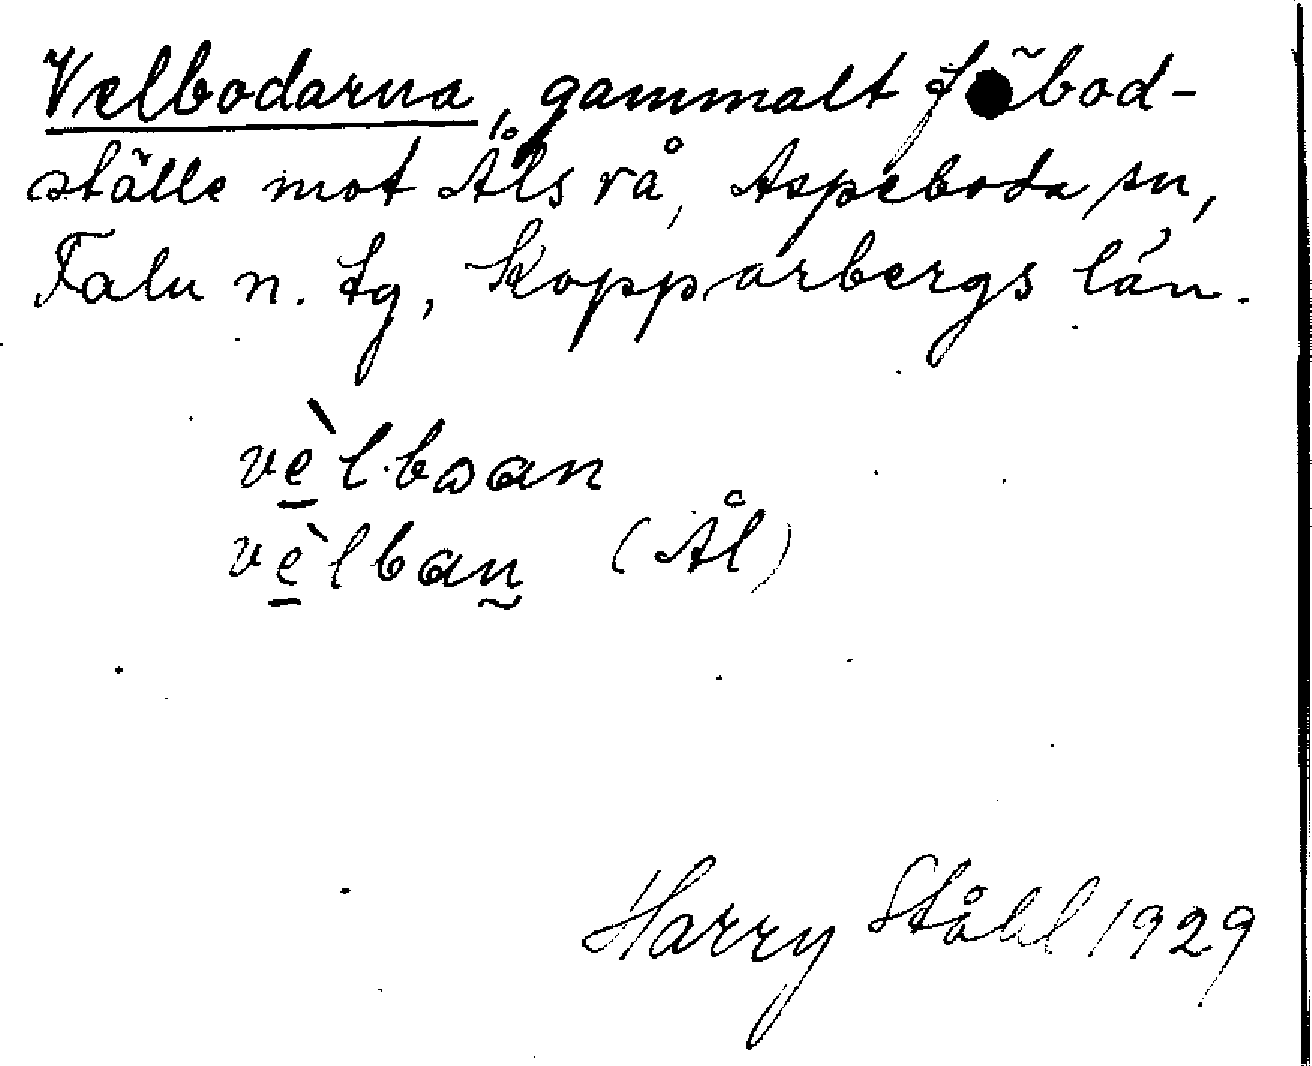 Velbodarna, gammalt fäbod-
ställe mot Åls rå, Aspeboda sn,
Falu n. tg, Kopparbergs län.
vè̠l·bωan
vè̠lbaṉ (Ål)
Harry Ståhl 1929